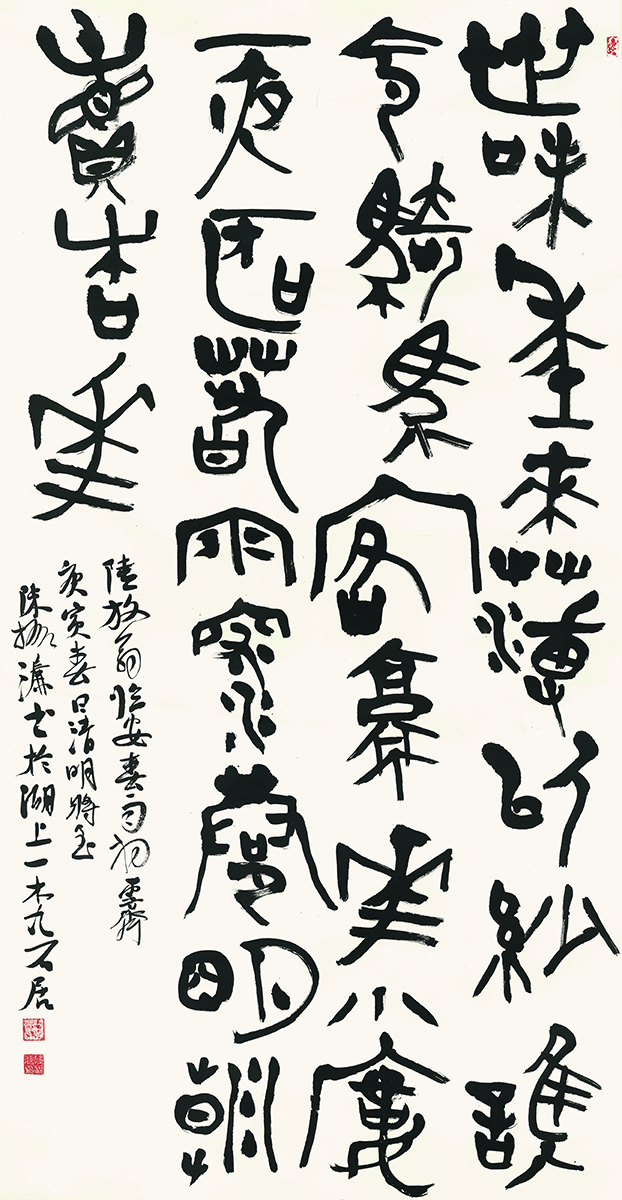 世味年來薄似紗誰
令騎馬客京華小樓
一夜聽春雨深巷明朝
賣杏華
陸放翁臨安春雨初霽
庚寅春日清明將至
陳振濂書於湖上一木九石居